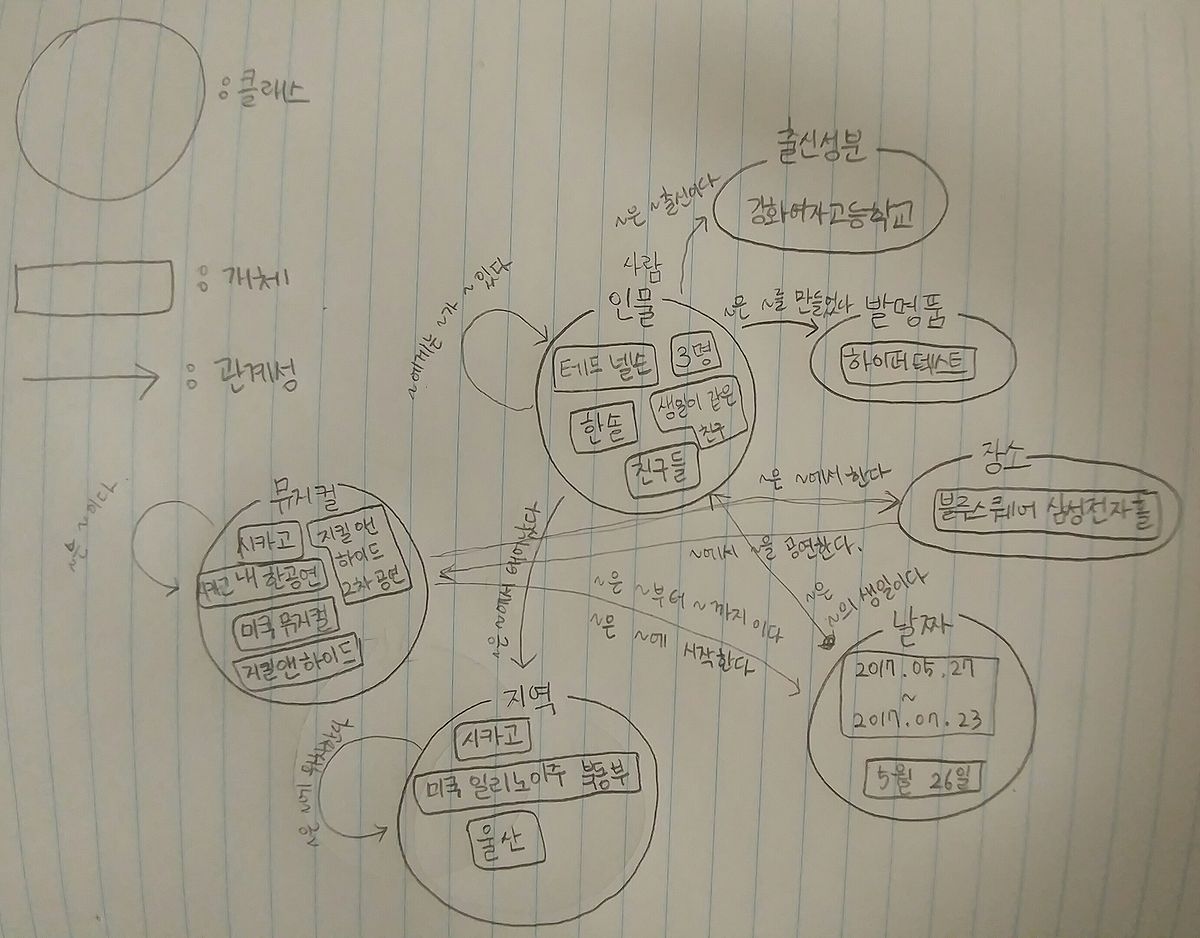 : 클래스
: 개체
: 관계성
출신성분
강화여자고등학교
~은 ~출신이다
사람
인물
테드 넬슨
3명
한솔
생일이 같은
친구
친구들
~에게는 ~가 ~ 있다
~은 ~를 만들었다
발명품
하이퍼텍스트
장소
블루스퀘어 삼성전자홀
~은 ~에서 한다
~에서 ~을 공연한다.
뮤지컬
시카고
지킬 앤
하이드
2차 공연
시카고 내한공연
미국 뮤지컬
지킬앤하이드
~은 ~이다
~은 ~에서 태어났다
~은 ~부터 ~까지이다
~은 ~에 시작한다
~은
~의 생일이다
날짜
2017.05.27
~
2017.07.23
5월 26일
지역
시카고
미국 일리노이주 북동부
울산
~은 ~에 위치한다